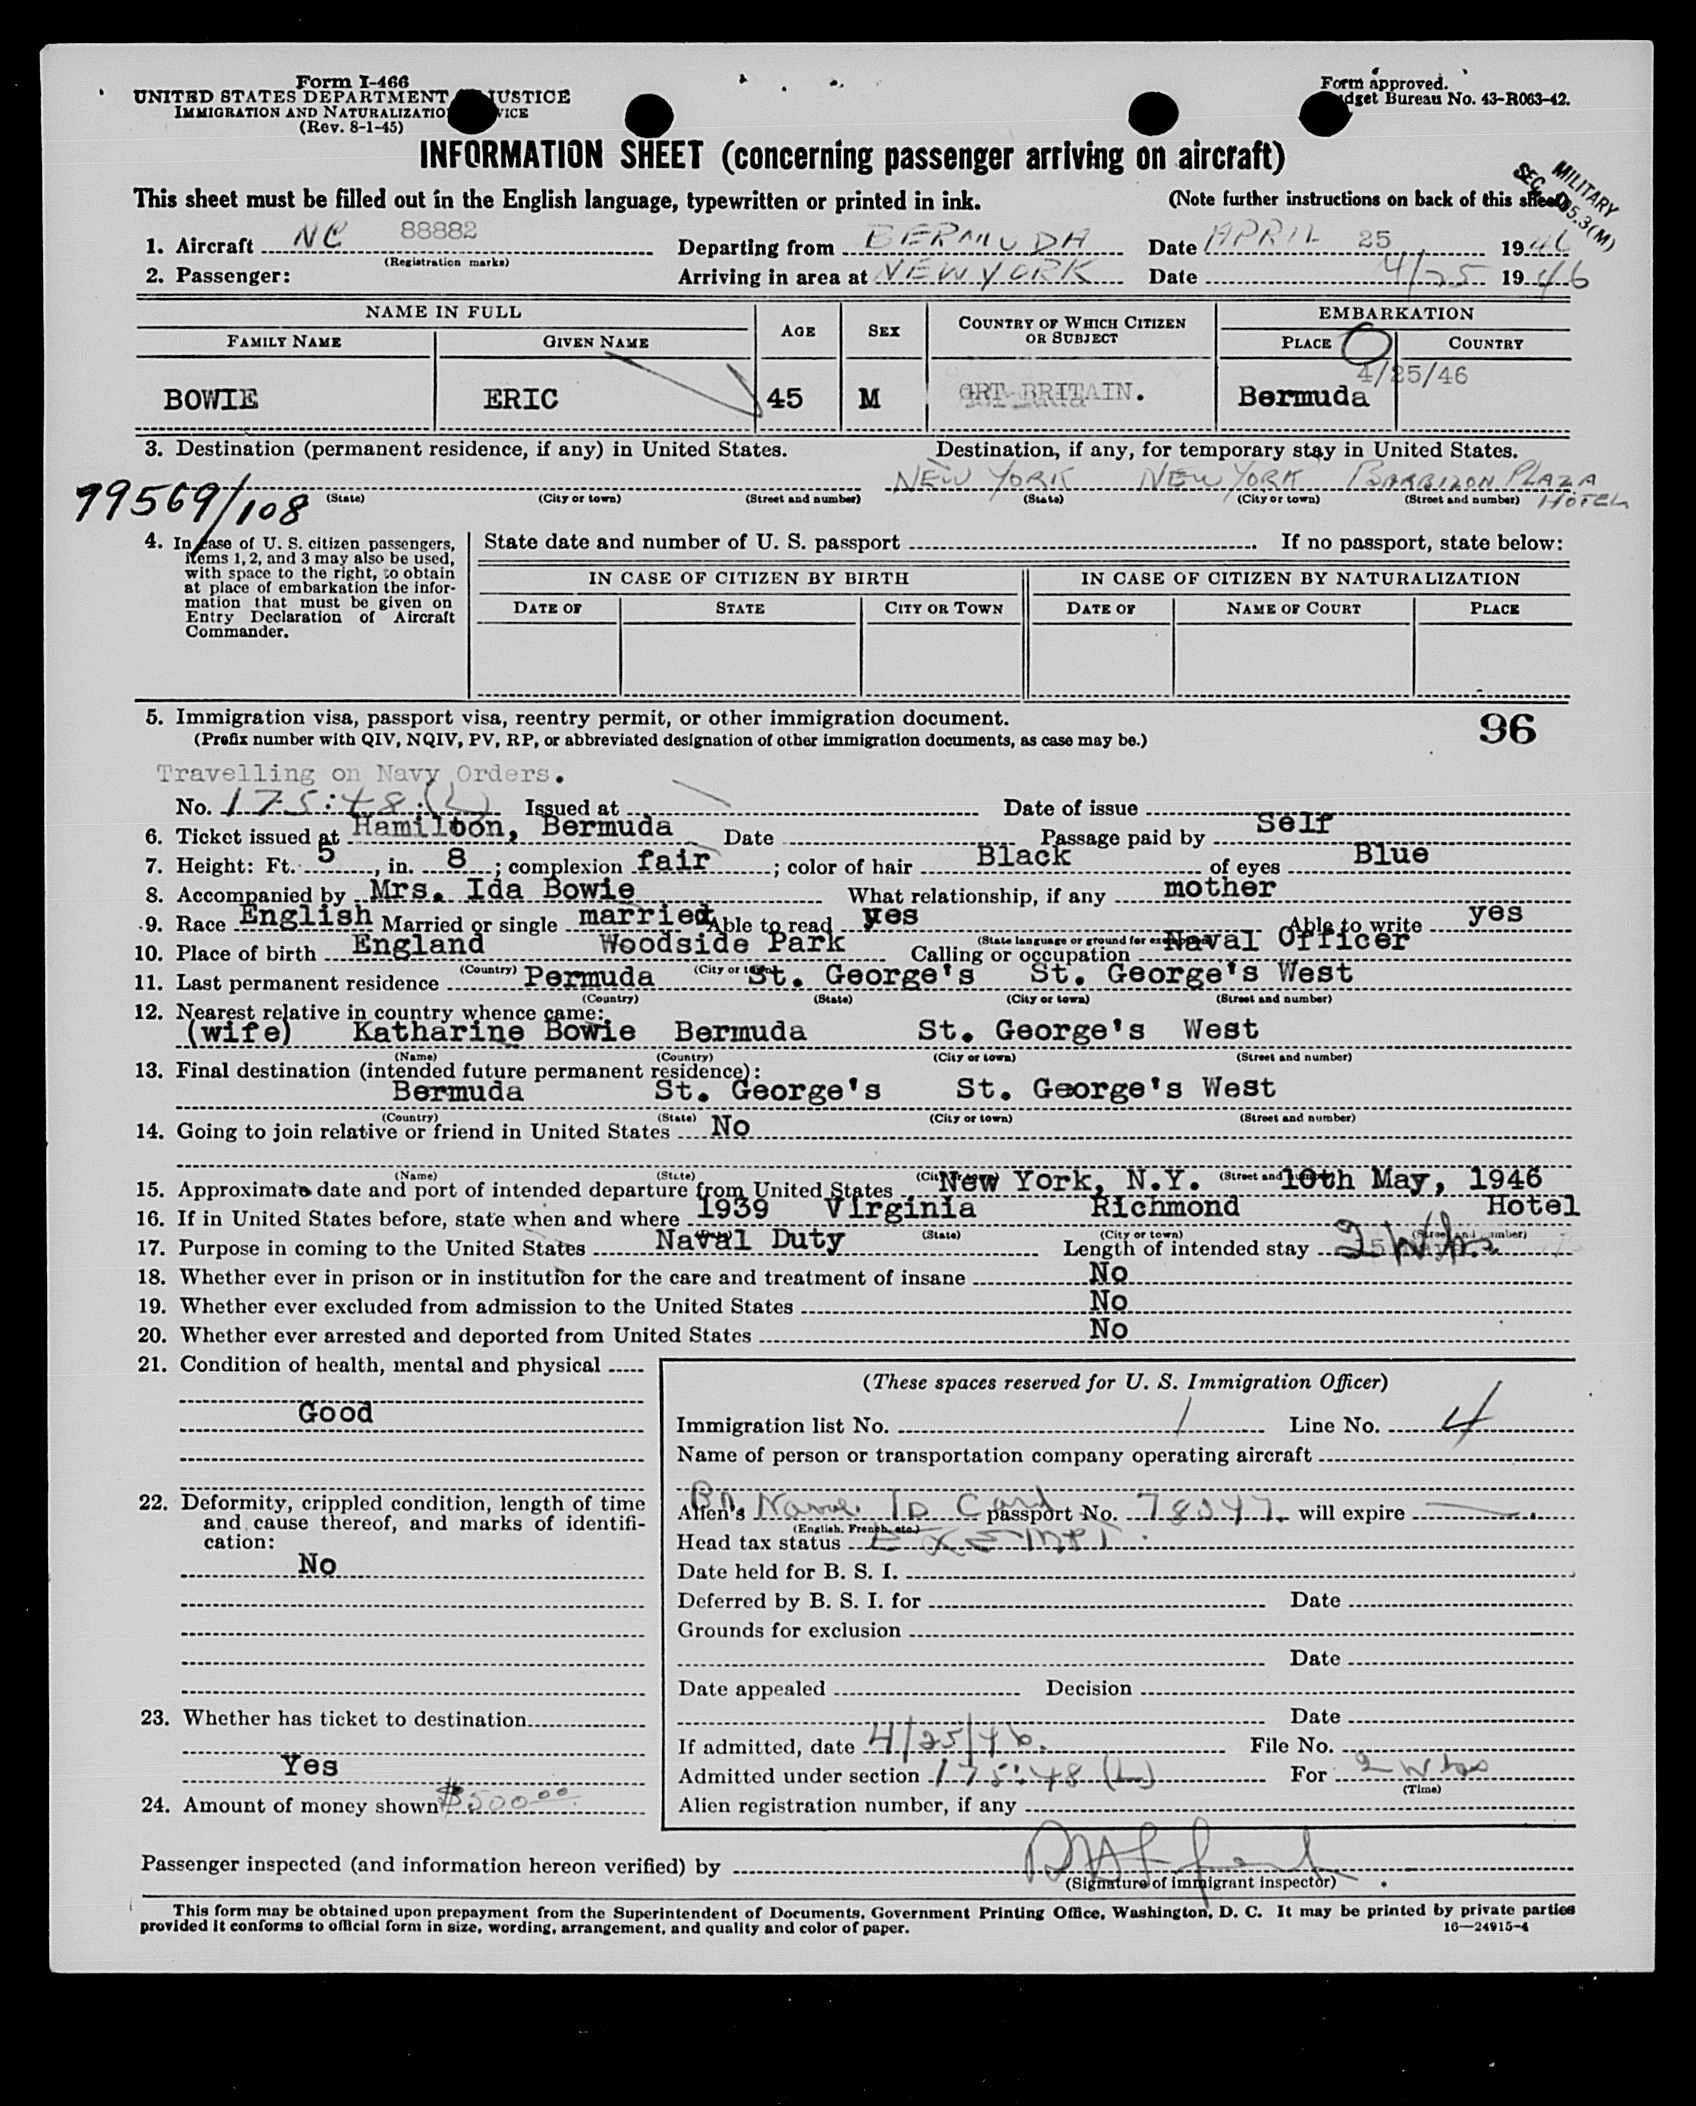 Form I-466
UNITED STATES DEPARTMENT JUSTICE
IMMIGRATION AND NATURALIZATIO VICE
(Rev. 8-1-45)
Form approved.
dget Bureau No. 43-R063-42.
INFORMATION SHEET (concerning passenger arriving on aircraft)
This sheet must be filled out in the English language, typewritten or printed in ink.
(Note further instructions on back of this sheet)
MILITARY
SEC. 3(M)
1. Aircraft NC 88882 Departing from BERMUDA Date APRIL 25 1946
(Registration marks)
2. Passenger: Arriving in area at NEW YORK Date 4/25 1946
NAME IN FULL
FAMILY NAME GIVEN NAME AGE SEX COUNTRY OF WHICH CITIZEN OR SUBJECT EMBARKATION
PLACE COUNTRY
4/25/46
BOWIE ERIC 45 M GRT BRITAIN. Bermuda
3. Destination (permanent residence, if any) in United States. Destination, if any, for temporary stay in United States.
NEW YORK NEW YORK BARBIZON PLAZA HOTEL
(State) (City or town) (Street and number) (State) (City or town) (Street and number)
99569/108
4. In case of U. S. citizen passengers, items 1, 2, and 3 may also be used, with space to the right, to obtain at place of embarkation the information that must be given on Entry Declaration of Aircraft Commander.
State date and number of U. S. passport If no passport, state below:
IN CASE OF CITIZEN BY BIRTH IN CASE OF CITIZEN BY NATURALIZATION
DATE OF STATE CITY OR TOWN DATE OF NAME OF COURT PLACE
5. Immigration visa, passport visa, reentry permit, or other immigration document.
96
(Prefix number with QIV, NQIV, PV, RP, or abbreviated designation of other immigration documents, as case may be.)
Travelling on Navy Orders.
No. 175:48:(L) Issued at Date of issue
6. Ticket issued at Hamilton, Bermuda Date Passage paid by Self
7. Height: Ft. 5, in. 8; complexion fair; color of hair Black of eyes Blue
8. Accompanied by Mrs. Ida Bowie What relationship, if any mother
9. Race English Married or single married Able to read yes Able to write yes
(State language or ground for
10. Place of birth England Woodside Park Calling or occupation Naval Officer
(Country) (City or town)
11. Last permanent residence Permuda St. George's St. George's West
(Country) (State) (City or town) (Street and number)
12. Nearest relative in country whence came:
(wife) Katharine Bowie Bermuda St. George's West
(Name) (Country) (City or town) (Street and number)
13. Final destination (intended future permanent residence):
Bermuda St. George's St. George's West
(Country) (State) (City or town) (Street and number)
14. Going to join relative or friend in United States No
(Name) (State) (City or town) (Street and number)
15. Approximate date and port of intended departure from United States New York, N.Y. 10th May, 1946
16. If in United States before, state when and where 1939 Virginia Richmond Hotel
(State) (City or town) (Street and number)
17. Purpose in coming to the United States Naval Duty Length of intended stay 2 wks
18. Whether ever in prison or in institution for the care and treatment of insane No
19. Whether ever excluded from admission to the United States No
20. Whether ever arrested and deported from United States No
21. Condition of health, mental and physical
Good
22. Deformity, crippled condition, length of time and cause thereof, and marks of identification:
No
23. Whether has ticket to destination
Yes
24. Amount of money shown $500.00
(These spaces reserved for U. S. Immigration Officer)
Immigration list No. 1 Line No. 4
Name of person or transportation company operating aircraft
Alien's Br. Naval ID Card passport No. 78347. will expire
(English, French, etc.)
Head tax status EXEMPT
Date held for B. S. I.
Deferred by B. S. I. for Date
Grounds for exclusion
Date
Date appealed Decision
Date
If admitted, date 4/25/46. File No.
Admitted under section 175:48 (L) For 2 wks
(Time)
Alien registration number, if any
Passenger inspected (and information hereon verified) by
(Signature of immigrant inspector)
This form may be obtained upon prepayment from the Superintendent of Documents, Government Printing Office, Washington, D. C. It may be printed by private parties
provided it conforms to official form in size, wording, arrangement, and quality and color of paper. 16—24915-4